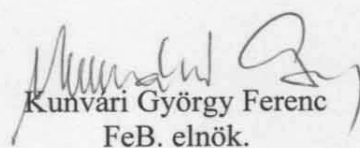 Kunvári György Ferenc
FeB. elnök.